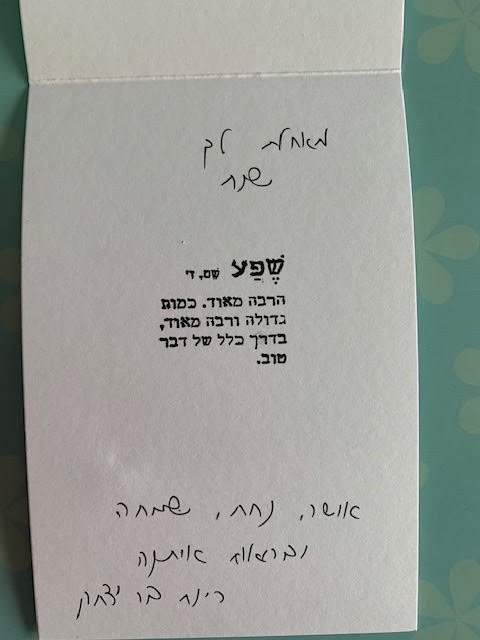 מאחלת לך
שנת
שֶׁפַע שֵׁם, ז'
הרבה מאוד. כמות
גדולה ורבה מאוד,
בדרך כלל של דבר
טוב.
אושר, נחת, שמחה
ובריאות איתנה
רינת בר יצחק